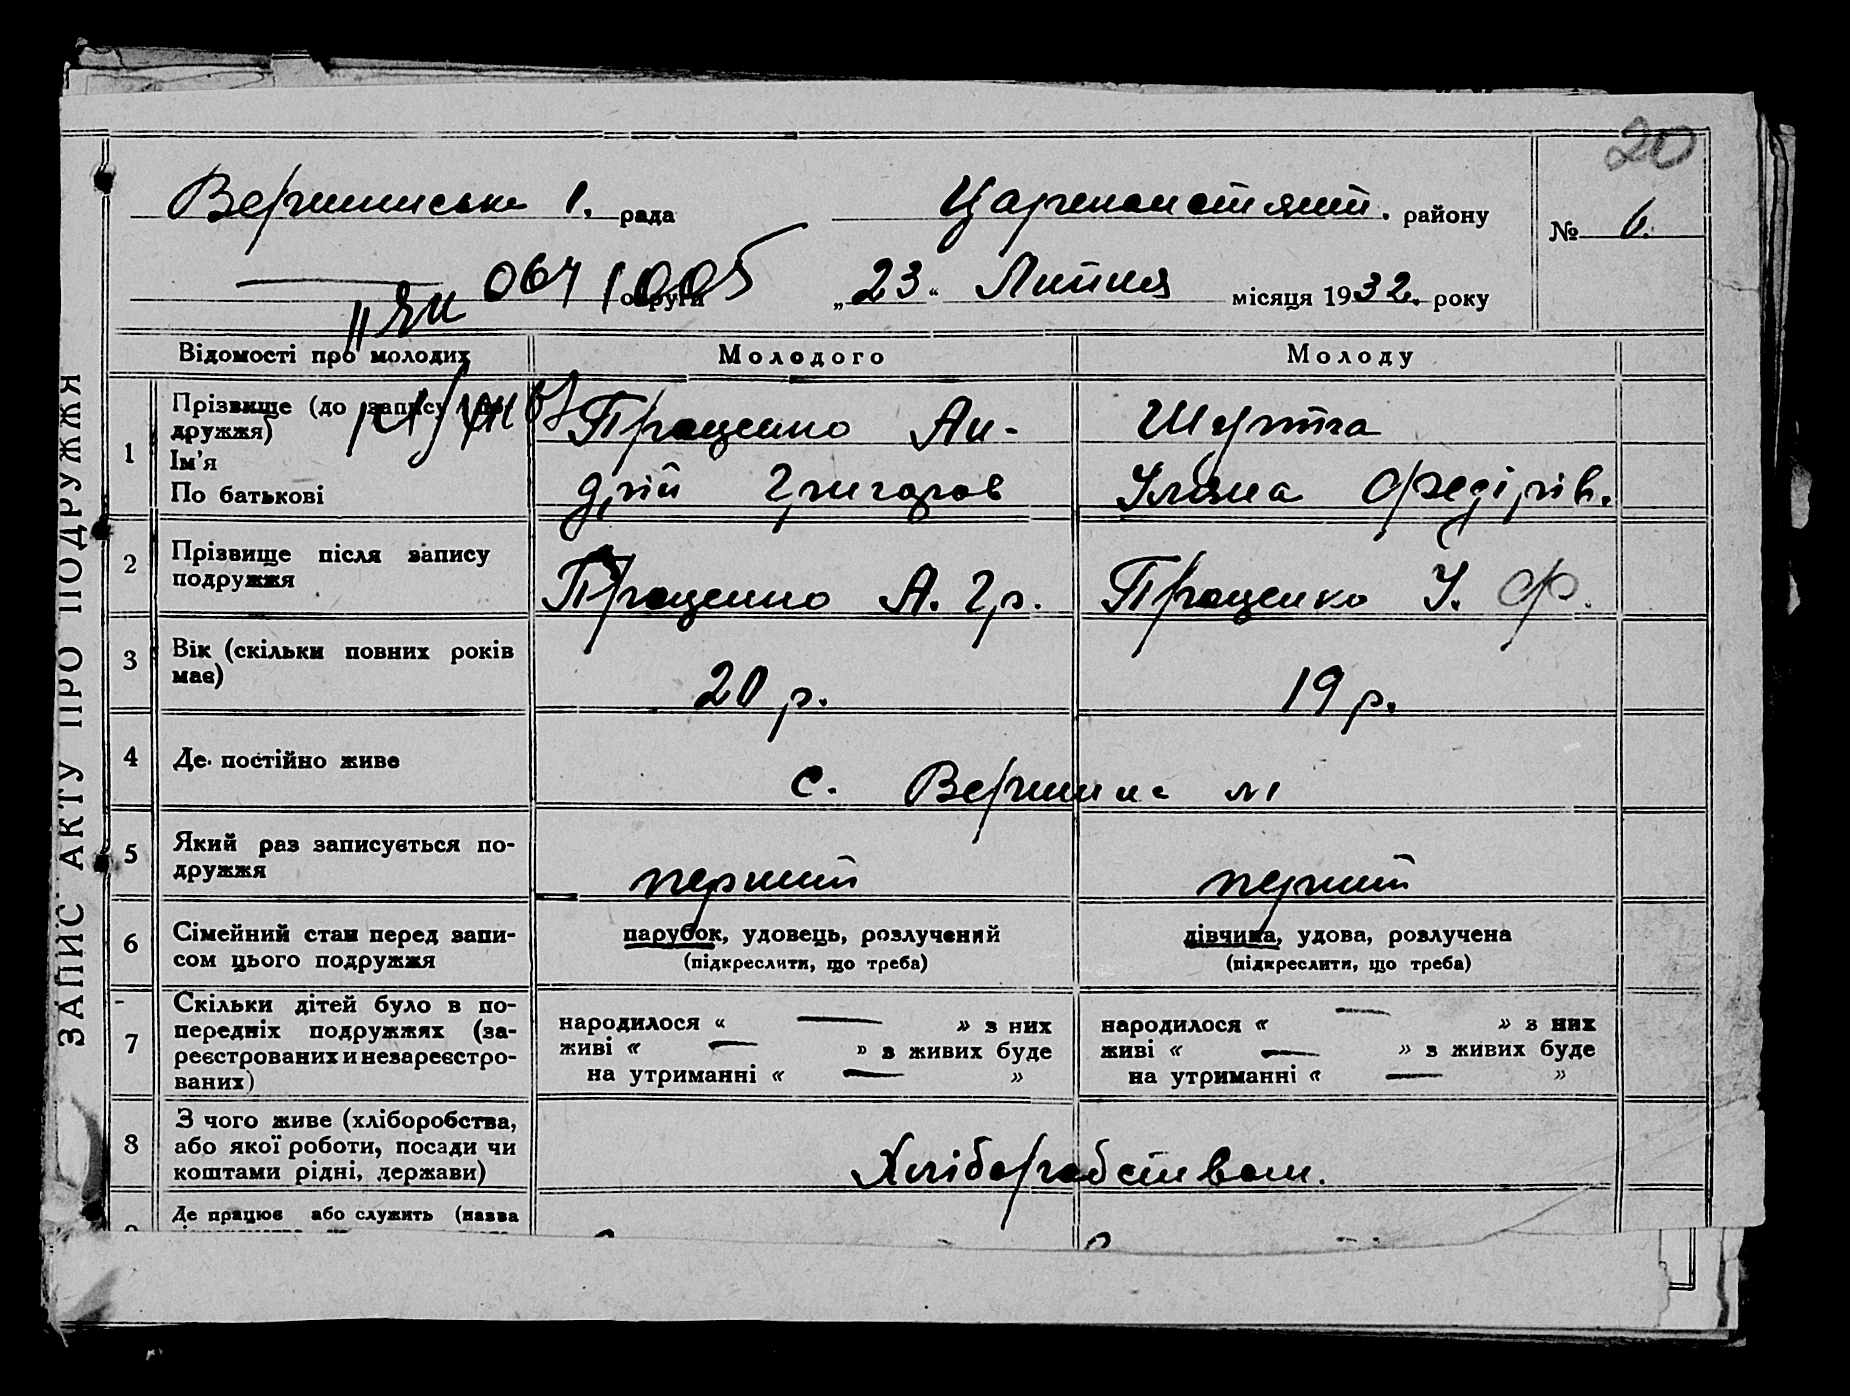 20
Вершинська 1. рада
Царичанський. району
№ 6.
064 1005 округи
„23" Липня місяця 1932. року
ЗАПИС АКТУ ПРО ПОДРУЖЖЯ
Відомості про молодих
Молодого
Молоду
1
Прізвище (до запису подружжя)
Ім'я
По батькові
Проценко Ан-
дрій Григоров
Шульга
Уляна Федірів.
2
Прізвище після запису
подружжя
Проценко А. Гр.
Проценко У. Ф.
3
Вік (скільки повних років
має)
20 р.
19 р.
4
Де постійно живе
с. Вершина №1
5
Який раз записується по-
дружжя
перший
перший
6
Сімейний стан перед запи-
сом цього подружжя
парубок, удовець, розлучений
(підкреслити, що треба)
дівчина, удова, розлучена
(підкреслити, що треба)
7
Скільки дітей було в по-
передніх подружжях (за-
реєстрованих и незареєстро-
ваних)
народилося « — » з них
живі « — » з живих буде
на утриманні « — »
народилося « — » з них
живі « — » з живих буде
на утриманні « — »
8
З чого живе (хліборобства,
або якої роботи, посади чи
коштами рідні, держави)
Хліборобством.
Де працює або служить (назва